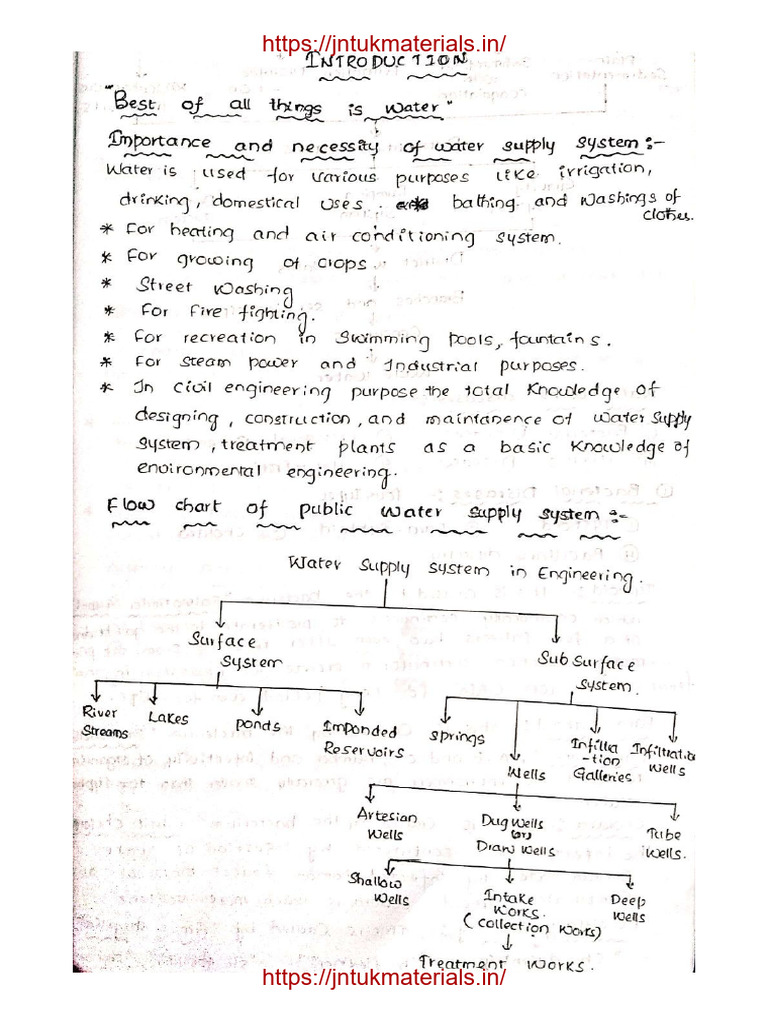 https://jntukmaterials.in/
INTRODUCTION
"Best of all things is water"
Importance and necessity of water supply system:-
Water is used for various purposes like irrigation,
drinking, domestical uses. bathing and washings of
clothes.
* For heating and air conditioning system.
* For growing of crops
* Street Washing
* For Fire fighting.
* For recreation in swimming pools, fountains.
* For steam power and Industrial purposes.
* In civil engineering purpose the total knowledge of
designing, construction, and maintanence of water supply
system, treatment plants as a basic knowledge of
environmental engineering.
Flow chart of public water supply system:-
Water supply system in Engineering.
Surface
System
Sub surface
System.
River
Streams
Lakes
Ponds
Imponded
Reservoirs
springs
Wells
Infiltra
-tion
Galleries
Infiltration
wells
Artesian
wells
Dug wells
(or)
Draw wells
Tube
wells.
Shallow
wells
Intake
works.
(collection works)
Deep
wells
Treatment works.
https://jntukmaterials.in/